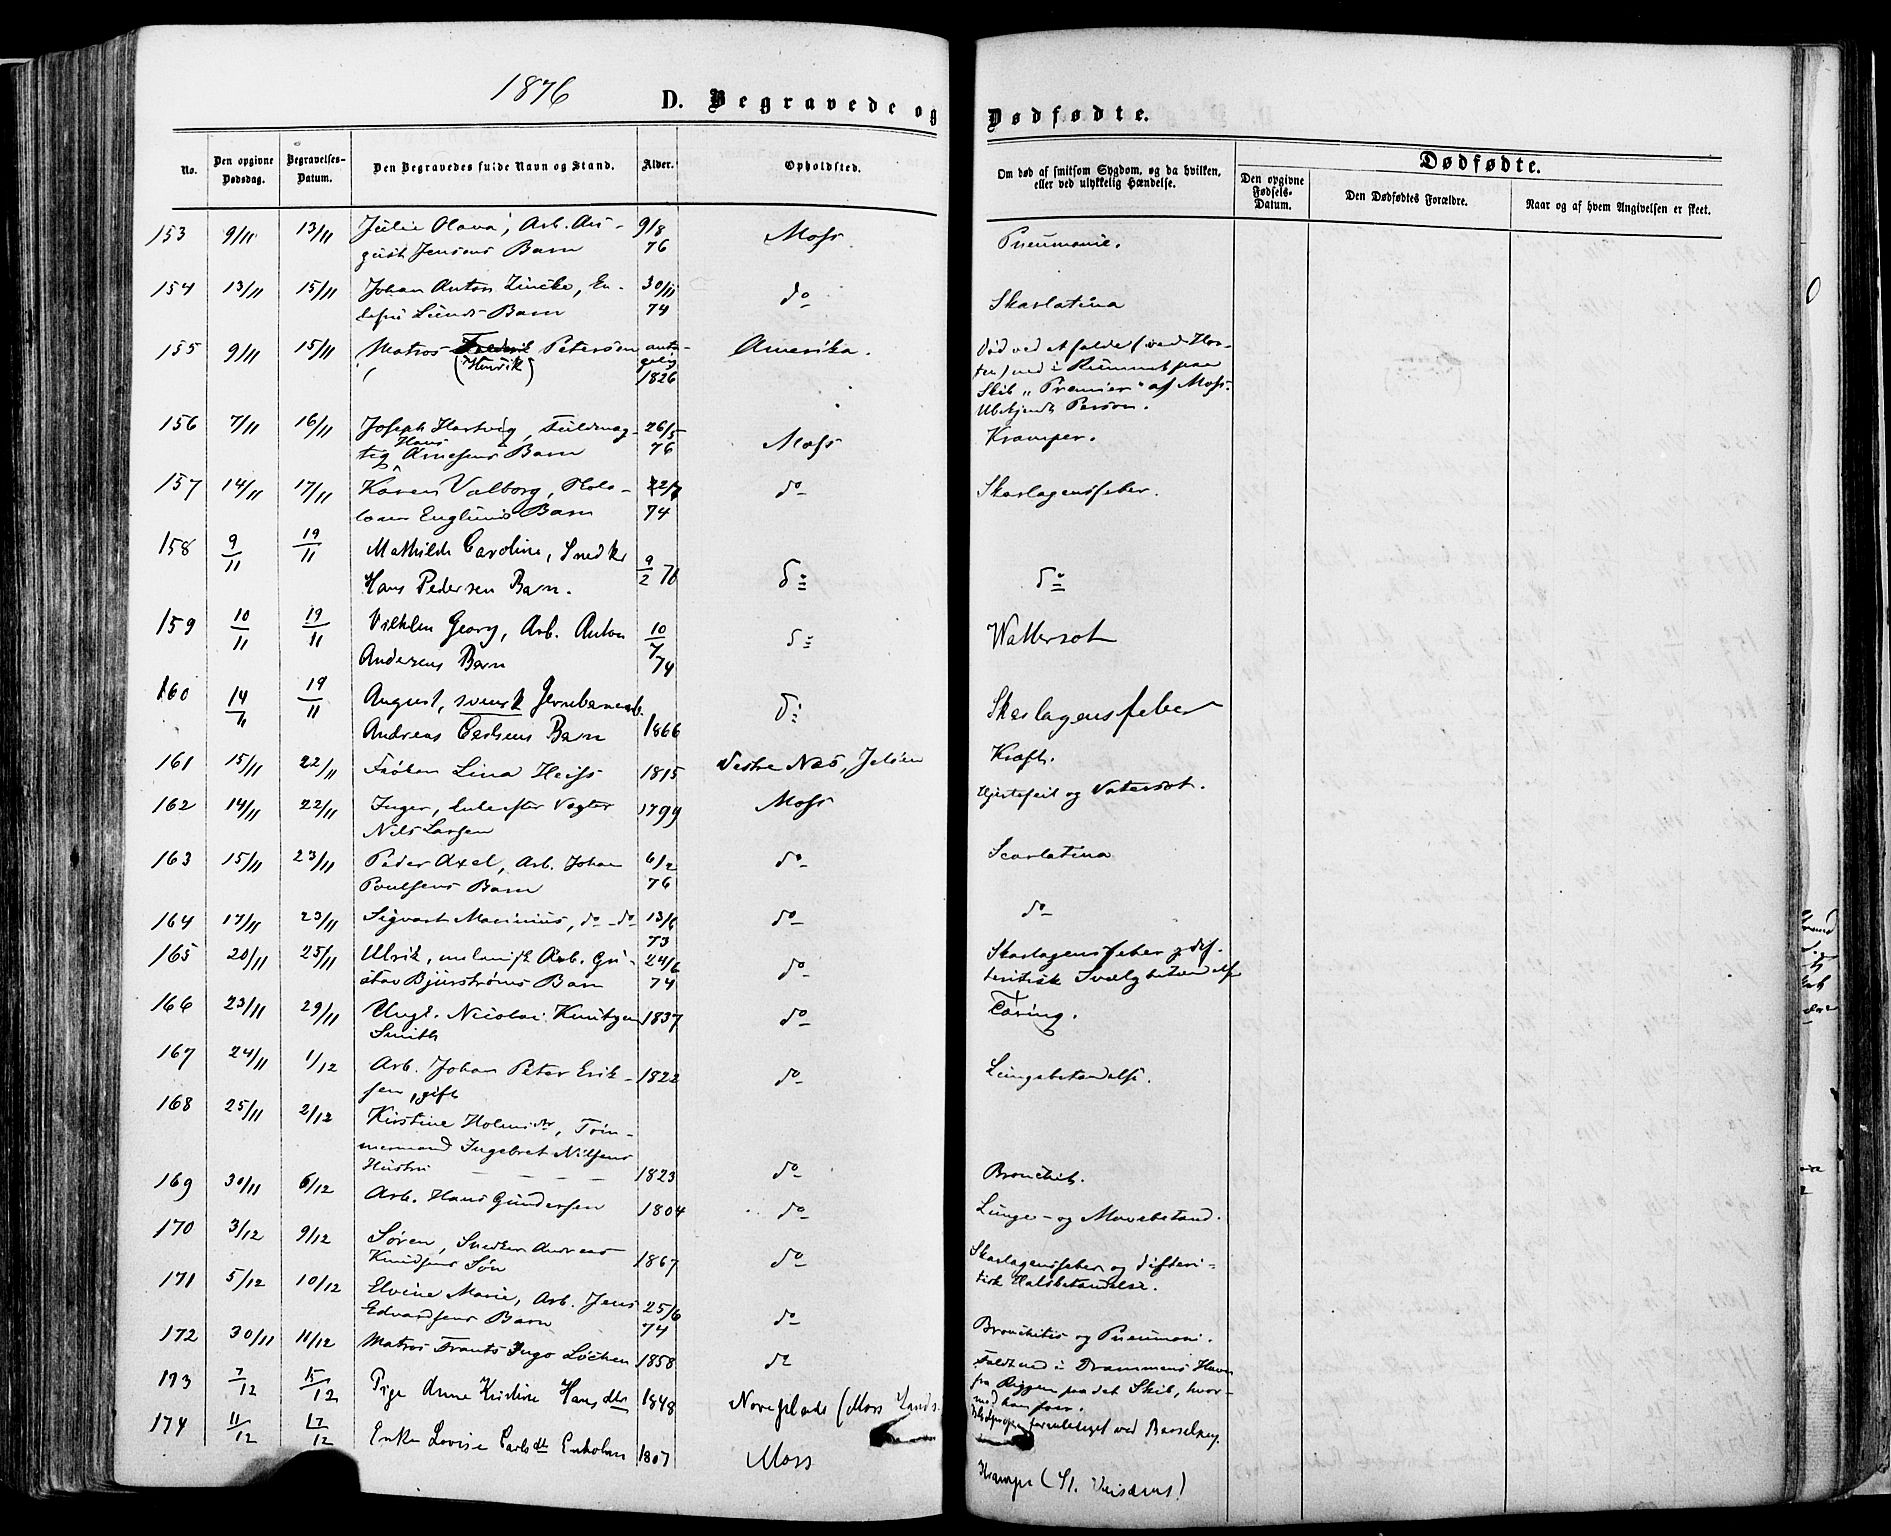 1876 D. Begravede og Dødfødte.
No. Den opgivne Dødsdag. Begravelses-Datum. Den Begravedes fulde Navn og Stand. Alder. Opholdsted. Om død af smitsom Sygdom, og da hvilken, eller ved ulykkelig Hændelse. Dødfødte.
Den opgivne Fødsels-Datum. Den Dødfødtes Forældre. Naar og af hvem Angivelsen er skeet.
153 9/11 13/11 Julie Olava, Arb. Au- 9/8 Moss. Pneumonie.
gust Jensens Barn 76
154 13/11 15/11 Johan Anton Lincke, En- 30/11 do Skarlatina
Lunds Barn 74
155 9/11 15/11 Matros Petersen anta- Amerika. Død ved at falde (ved Hov-
(Henrik) gelig ned i Rummet paa
1826 Skib "Premier" af Moss.
Ubekjendt Person.
156 7/11 16/11 Joseph Hartvig, Fuldmæg- 26/5 Moss Kramper.
tig Hans Arnesens Barn 76
157 14/11 17/11 Karen Valborg, 22/7 do Skarlagensfeber.
Englunds Barn 74
158 9/11 19/11 Mathilde Caroline, Snedker 9/2 76 do do
Hans Pedersen Barn.
159 10/11 19/11 Vilhelm Georg, Arb. Anton 10/7 do Wattersot
Andersens Barn 74
160 14/11 19/11 August, svensk Jernbanearb. do Skarlagensfeber
Andreas Carlsens Barn 1866
161 15/11 22/11 Frøken Lina Heiss 1815 Vestre Næs, Jeløen Kræft.
162 14/11 22/11 Inger, Enke efter Vegter 1799 Moss Hjertefeil og Vatersot.
Nils Larsen
163 15/11 23/11 Peder Axel, Arb. Johan 6/2 do Scarlatina
Poulsens Barn 76
164 17/11 23/11 Sigvart Marinius, do do 13/6 do do
73
165 20/11 25/11 Ulrik, Arb. Gu- 24/6 do Skarlagensfeber g dif-
stav Bjurstrøms Barn 74 teritisk Svælgbetændelse
166 23/11 29/11 Ungk. Nicolai Knutzen 1837 do Tæring.
Smith
167 24/11 1/12 Arb. Johan Peter Erik- 1822 do Lungebetændelse.
sen, gift
168 25/11 2/12 Kirstine Holmsdtr, Tøm-
mermand Ingebret Nilsens
Hustru 1823 do Bronchit.
169 30/11 6/12 Arb. Hans Gundersen 1804 do Lunge- og Mavebetænd.
170 3/12 9/12 Søren, Snedker Andreas 1867 do Skarlagensfeber og difteri-
Knudsens Søn tisk Halsbetændelse.
171 5/12 10/12 Elvine Marie, Arb. Jens 25/6 do
Edvardsens Barn 74
172 30/11 11/12 Matros Frants Ingo Løchen 1858 do Bronchitis og Pneumoni.
Faldt ned i Drammens Havn
fra Riggen paa det Skib, hvor-
med han foer.
173 7/12 15/12 Pige Anne Kristine Hansdtr 1848 Noreplads (Moss Lands. foranlediget ved Barselseng.
174 11/12 17/12 Enke Lovise Carlsdtr Enholm 1807 Moss Krampe (St. )